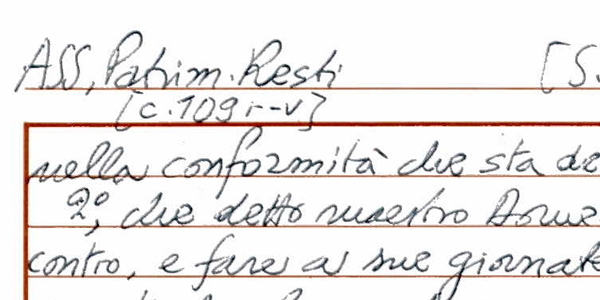 ASS, Patrim. Resti [S.
[c. 109 r-v]
nella conformità che sta de
2°, che detto maestro
contro, e fare a sue giornate